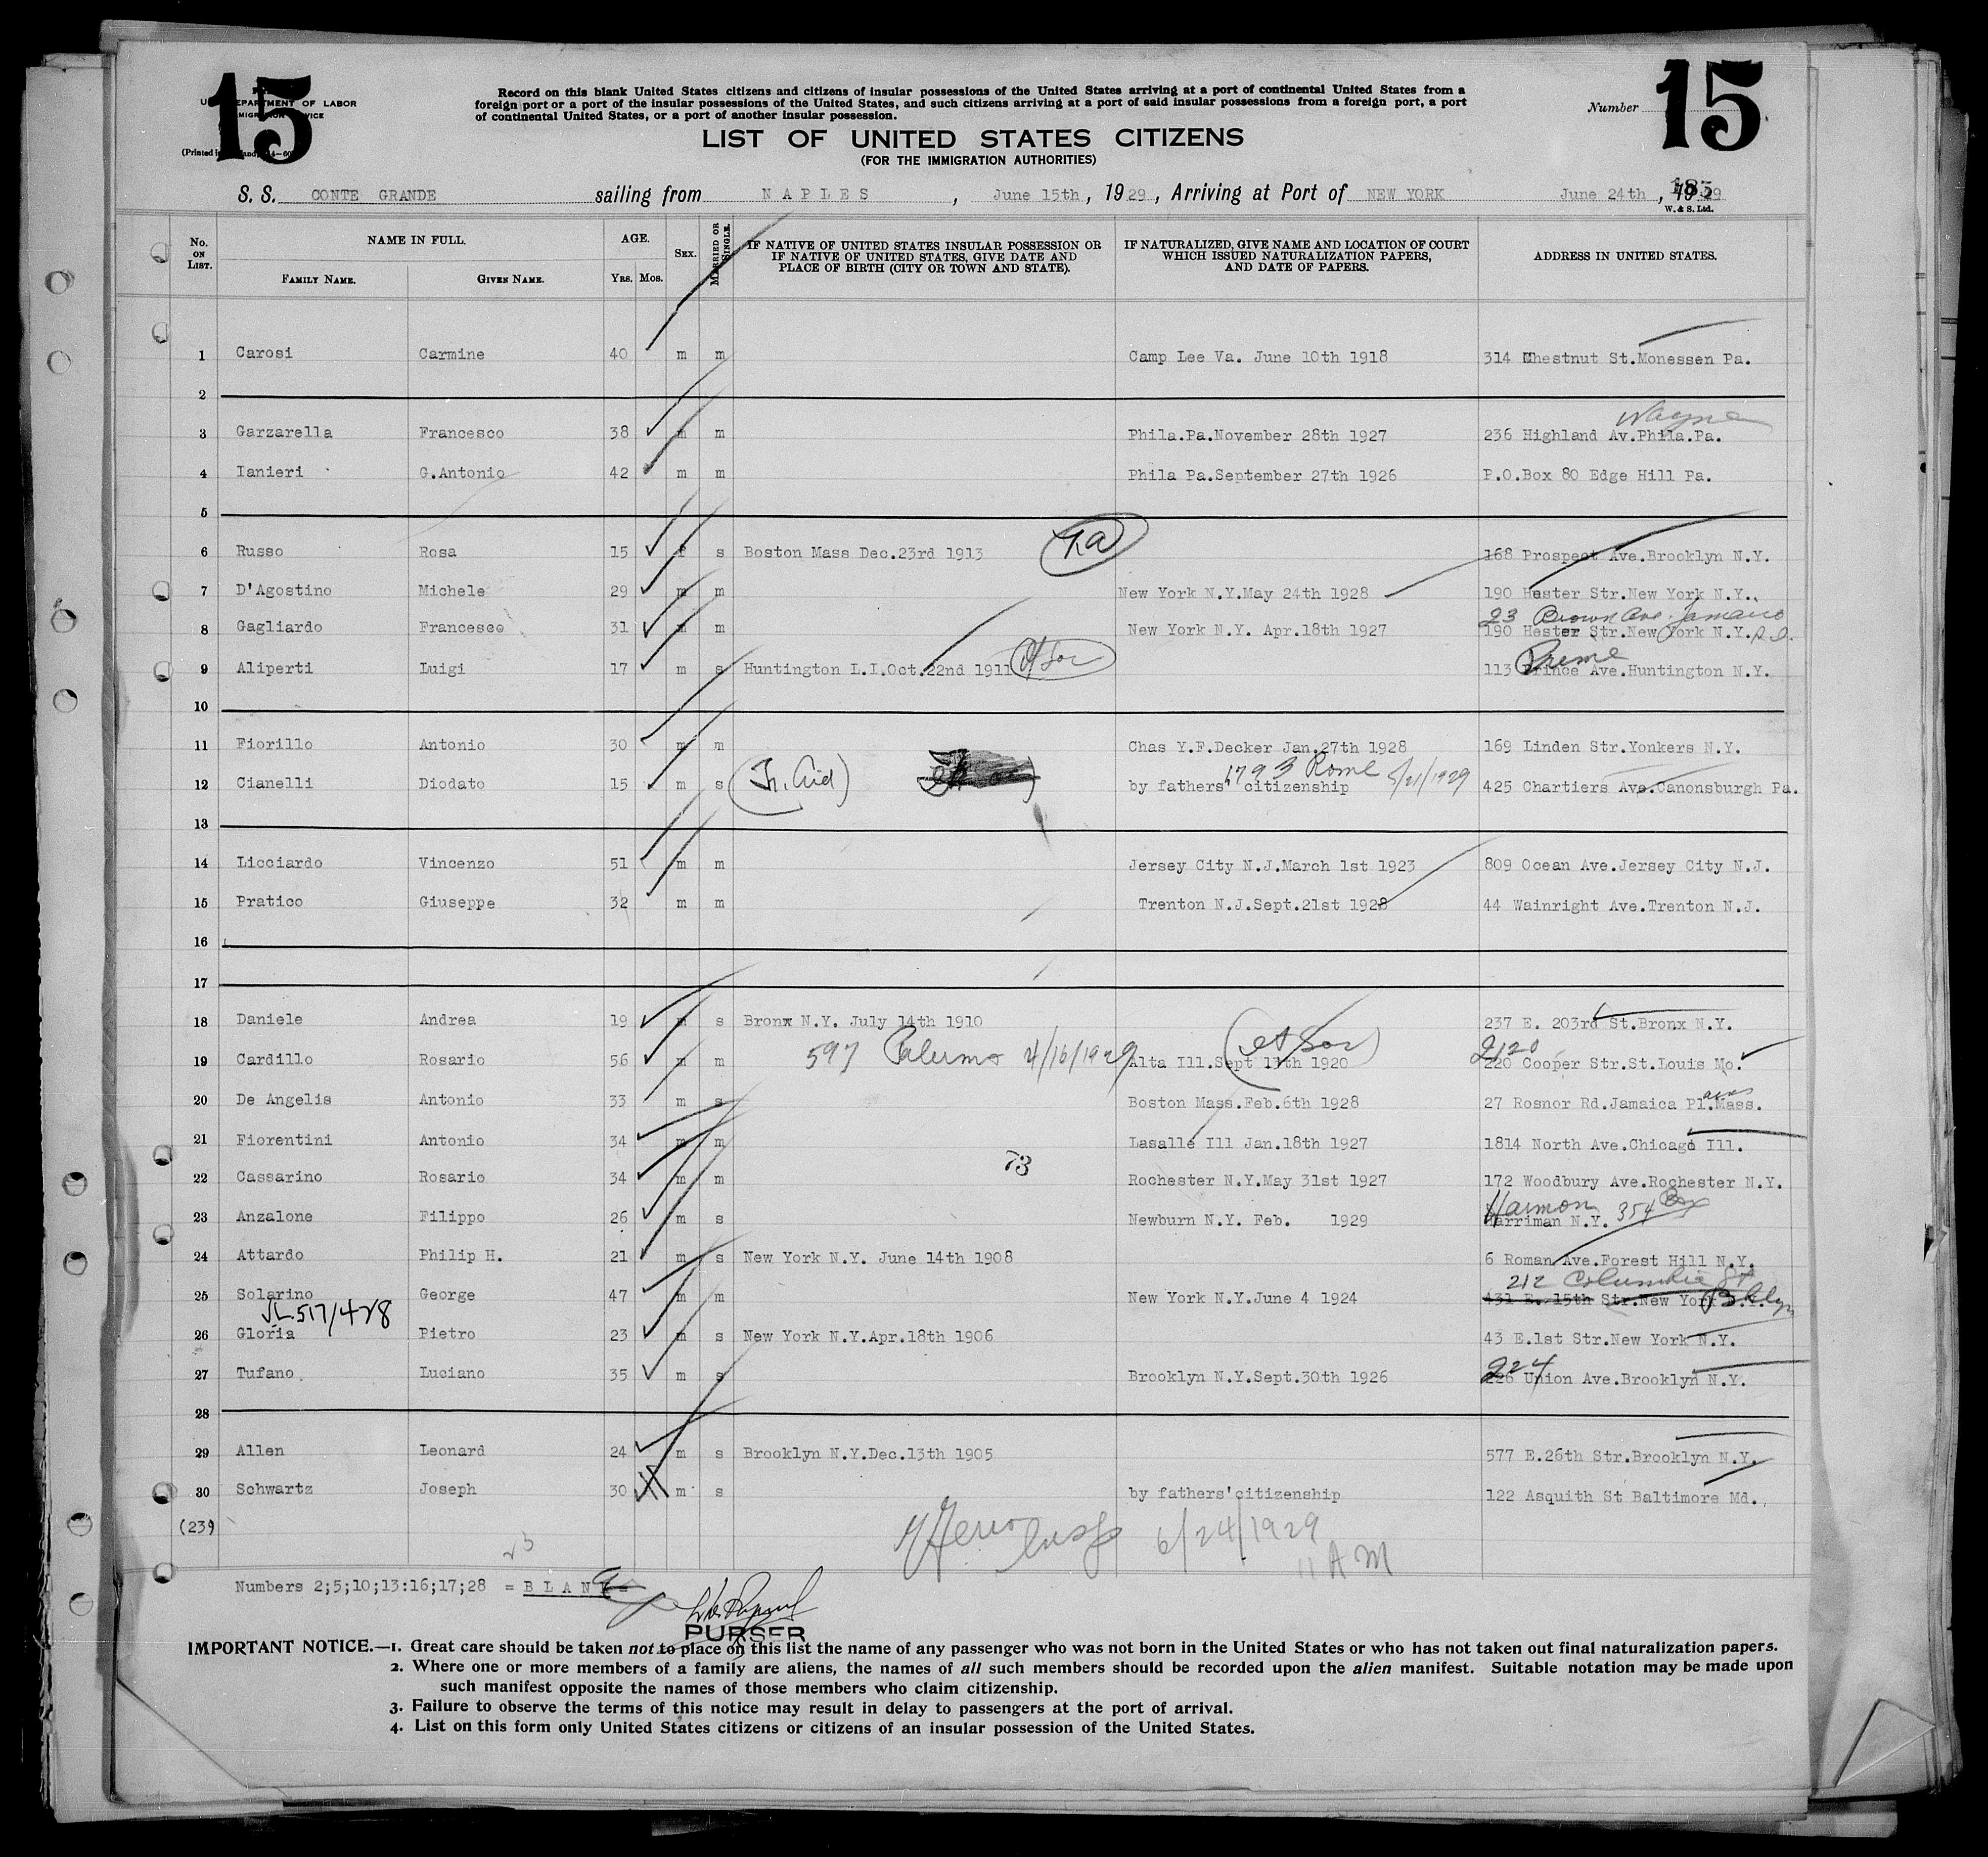 15
15
U. S. DEPARTMENT OF LABOR
IMMIGRATION SERVICE
Record on this blank United States citizens and citizens of insular possessions of the United States arriving at a port of continental United States from a
foreign port or a port of the insular possessions of the United States, and such citizens arriving at a port of said insular possessions from a foreign port, a port
of continental United States, or a port of another insular possession.
Number
LIST OF UNITED STATES CITIZENS
(FOR THE IMMIGRATION AUTHORITIES)
S. S. CONTE GRANDE sailing from NAPLES, June 15th, 1929, Arriving at Port of NEW YORK June 24th, 1929
183
W. & S. Ltd.
No. ON LIST. NAME IN FULL. FAMILY NAME. GIVEN NAME. AGE. Yrs. Mos. SEX. MARRIED OR SINGLE. IF NATIVE OF UNITED STATES INSULAR POSSESSION OR IF NATIVE OF UNITED STATES, GIVE DATE AND PLACE OF BIRTH (CITY OR TOWN AND STATE). IF NATURALIZED, GIVE NAME AND LOCATION OF COURT WHICH ISSUED NATURALIZATION PAPERS, AND DATE OF PAPERS. ADDRESS IN UNITED STATES.
1 Carosi Carmine 40 m m Camp Lee Va. June 10th 1918 314 Chestnut St.Monessen Pa.
2
Wayne
3 Garzarella Francesco 38 m m Phila.Pa.November 28th 1927 236 Highland Av.Phila.Pa.
4 Ianieri G.Antonio 42 m m Phila Pa.September 27th 1926 P.O.Box 80 Edge Hill Pa.
5
6 Russo Rosa 15 f s Boston Mass Dec.23rd 1913 168 Prospect Ave.Brooklyn N.Y.
7 D'Agostino Michele 29 m m New York N.Y.May 24th 1928 190 Hester Str.New York N.Y.
23 Brown Ave. Jamaica
8 Gagliardo Francesco 31 m m New York N.Y. Apr.18th 1927 190 Hester Str.New York N.Y.
9 Aliperti Luigi 17 m s Huntington L.I.Oct.22nd 1911 113 Prince Ave.Huntington N.Y.
Preme
10
11 Fiorillo Antonio 30 m m Chas Y.F.Decker Jan.27th 1928 169 Linden Str.Yonkers N.Y.
1793 Rome 5/21/1929
12 Cianelli Diodato 15 m s (Tr. Aid) by fathers' citizenship 425 Chartiers Ave.Canonsburgh Pa.
13
14 Licciardo Vincenzo 51 m m Jersey City N.J.March 1st 1923 809 Ocean Ave.Jersey City N.J.
15 Pratico Giuseppe 32 m m Trenton N.J.Sept.21st 1928 44 Wainright Ave.Trenton N.J.
16
17
18 Daniele Andrea 19 m s Bronx N.Y. July 14th 1910 237 E. 203rd St.Bronx N.Y.
597 Palermo 4/16/1929 2120
19 Cardillo Rosario 56 m m Alta Ill.Sept 13th 1920 220 Cooper Str.St.Louis Mo.
20 De Angelis Antonio 33 m s Boston Mass.Feb.6th 1928 27 Rosnor Rd.Jamaica Pl.Mass.
21 Fiorentini Antonio 34 m m Lasalle Ill Jan.18th 1927 1814 North Ave.Chicago Ill.
73
22 Cassarino Rosario 34 m m Rochester N.Y.May 31st 1927 172 Woodbury Ave.Rochester N.Y.
Harmon 354 Box
23 Anzalone Filippo 26 m s Newburn N.Y. Feb. 1929 Harriman N.Y.
24 Attardo Philip H. 21 m s New York N.Y. June 14th 1908 6 Roman Ave.Forest Hill N.Y.
212 Columbia St Bklyn
25 Solarino George 47 m m New York N.Y.June 4 1924 431 E. 15th Str.New York N.Y.
517/428
26 Gloria Pietro 23 m s New York N.Y.Apr.18th 1906 43 E.1st Str.New York N.Y.
224
27 Tufano Luciano 35 m s Brooklyn N.Y.Sept.30th 1926 226 Union Ave.Brooklyn N.Y.
28
29 Allen Leonard 24 m s Brooklyn N.Y.Dec.13th 1905 577 E.26th Str.Brooklyn N.Y.
30 Schwartz Joseph 30 m s by fathers'citizenship 122 Asquith St Baltimore Md.
(23)
23
6/24/1929
11 AM
Numbers 2;5;10;13:16;17;28 = BLANK =
PURSER
IMPORTANT NOTICE.—1. Great care should be taken not to place on this list the name of any passenger who was not born in the United States or who has not taken out final naturalization papers.
2. Where one or more members of a family are aliens, the names of all such members should be recorded upon the alien manifest. Suitable notation may be made upon
such manifest opposite the names of those members who claim citizenship.
3. Failure to observe the terms of this notice may result in delay to passengers at the port of arrival.
4. List on this form only United States citizens or citizens of an insular possession of the United States.